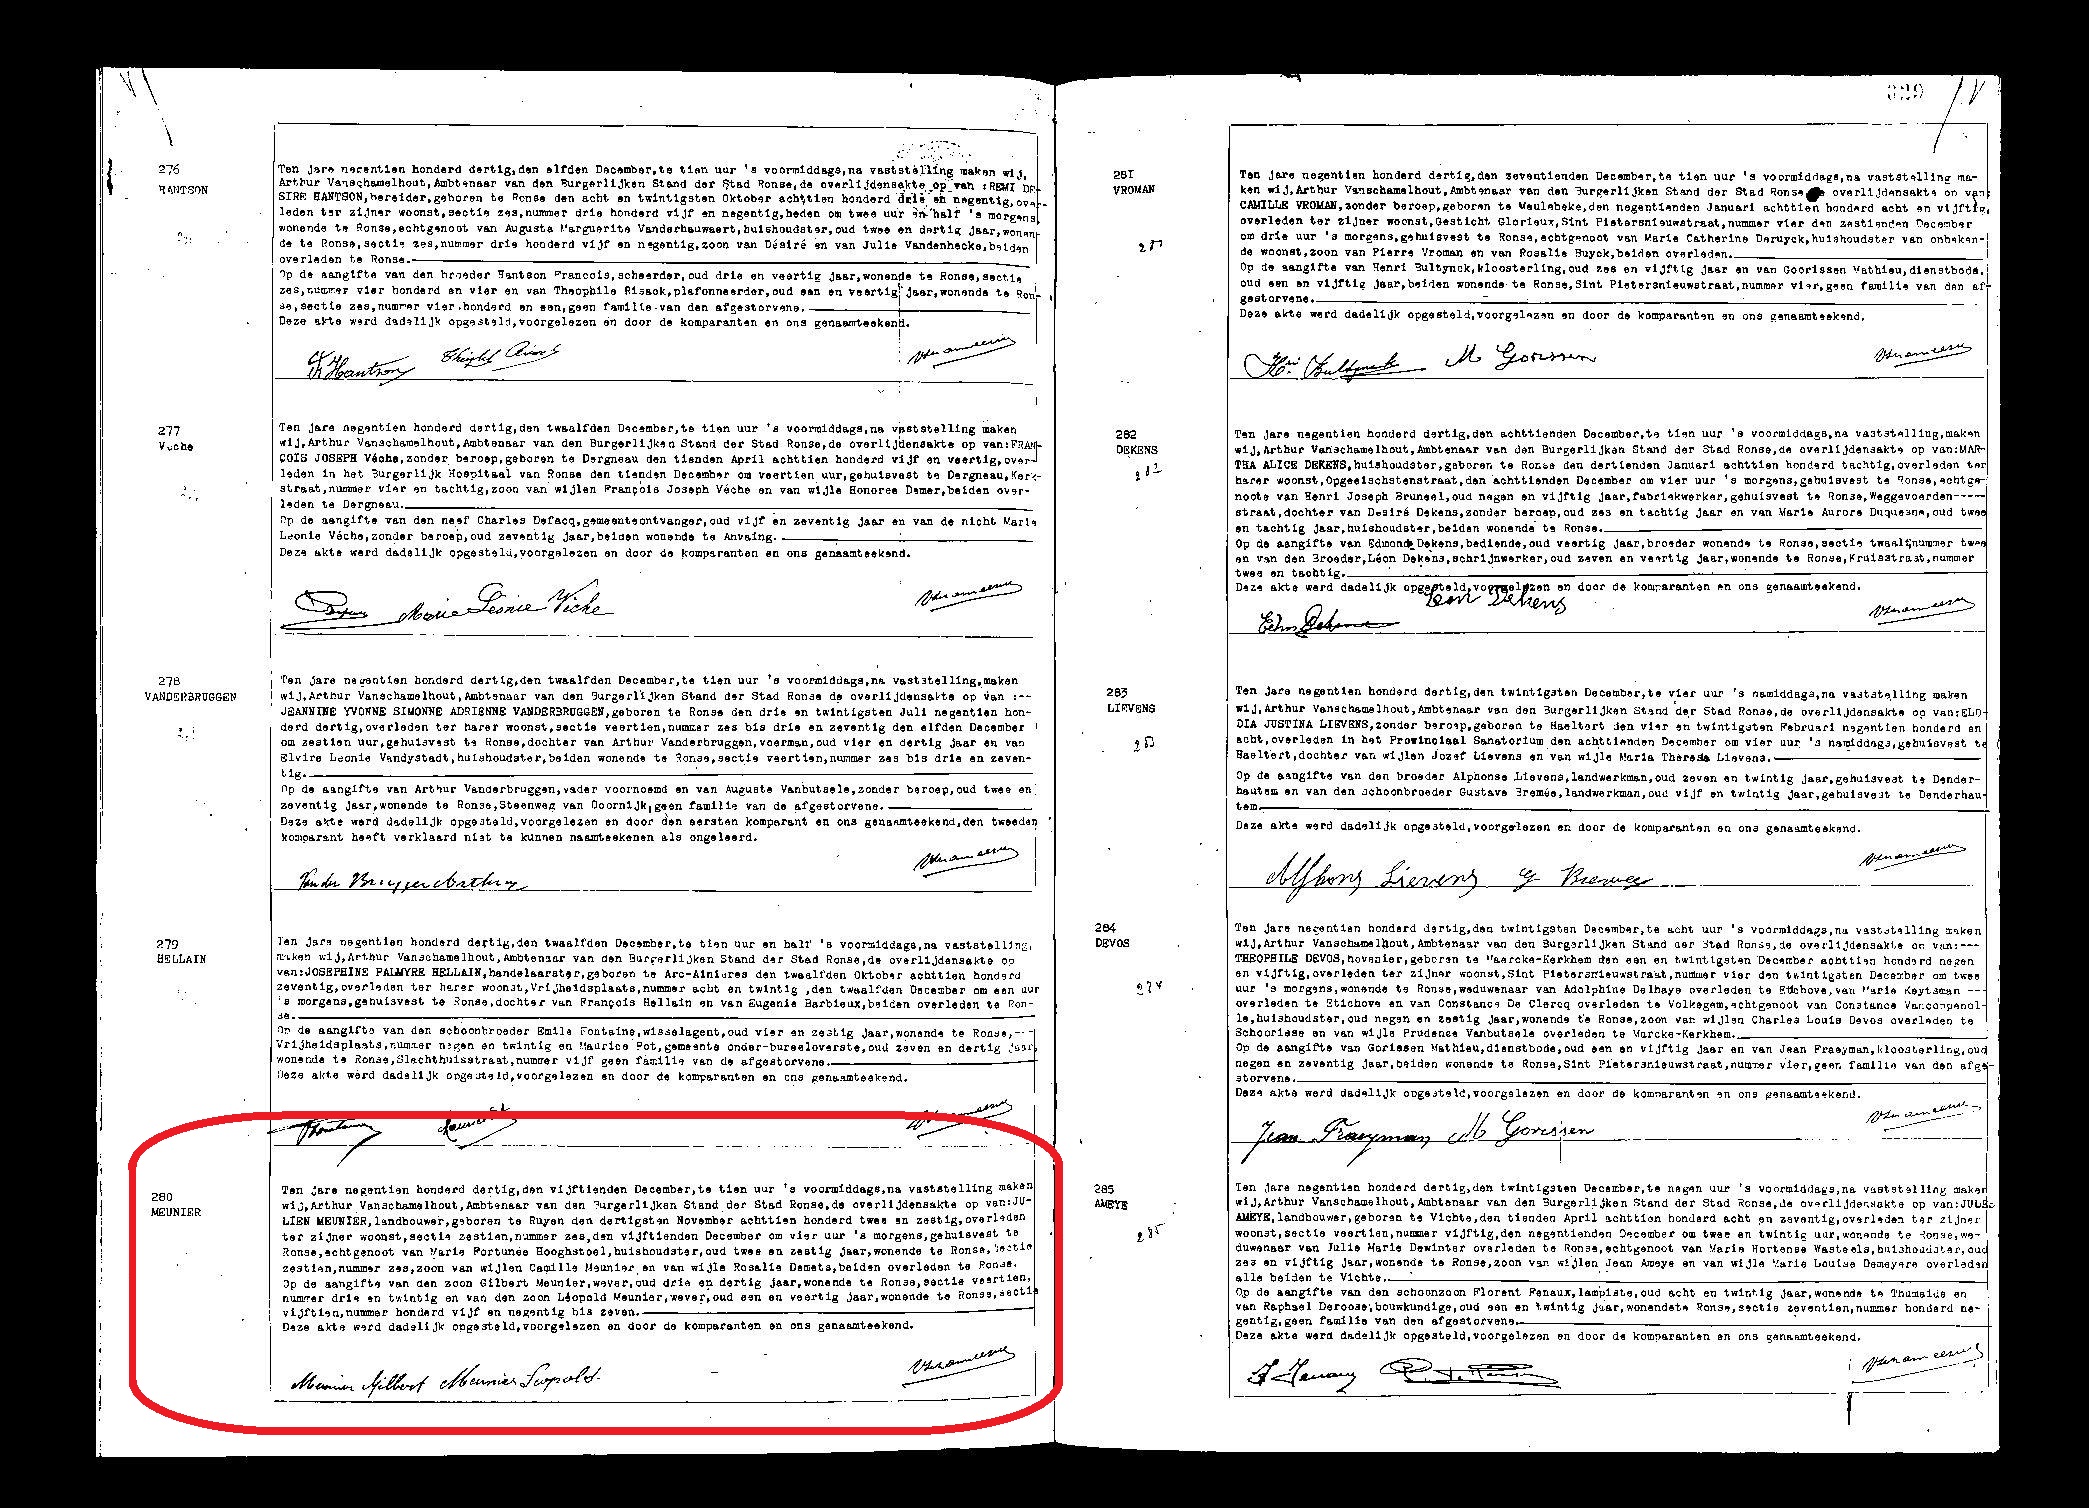 276
HANTSON
Ten jare negentien honderd dertig,den elfden December,te tien uur 's voormiddags,na vaststelling maken wij,
Arthur Vanschamelhout,Ambtenaar van den Burgerlijken Stand der Stad Ronse,de overlijdensakte op van :REMI DE-
SIRE HANTSON,bereider,geboren te Ronse den acht en twintigsten Oktober achttien honderd drie en negentig,over-
leden ter zijner woonst,sectie zes,nummer drie honderd vijf en negentig,heden om twee uur en half 's morgens,
wonende te Ronse,echtgenoot van Augusta Marguerite Vanderhauwaert,huishoudster,oud twee en dertig jaar,wonen-
de te Ronse,sectie zes,nummer drie honderd vijf en negentig,zoon van Désiré en van Julie Vandenhecke,beiden
overleden te Ronse.
Op de aangifte van den broeder Hantson Francois,scheerder,oud drie en veertig jaar,wonende te Ronse,sectie
zes,nummer vier honderd en vier en van Theophile Risack,plafonneerder,oud een en veertig jaar,wonende te Ron-
se,sectie zes,nummer vier honderd en een,geen familie van den afgestorvene.
Deze akte werd dadelijk opgesteld,voorgelezen en door de komparanten en ons genaamteekend.
277
Veche
Ten jare negentien honderd dertig,den twaalfden December,te tien uur 's voormiddags,na vaststelling maken
wij,Arthur Vanschamelhout,Ambtenaar van den Burgerlijken Stand der Stad Ronse,de overlijdensakte op van:FRAN-
COIS JOSEPH Véche,zonder beroep,geboren te Dergneau den tienden April achttien honderd vijf en veertig,over-
leden in het Burgerlijk Hospitaal van Ronse den tienden December om veertien uur,gehuisvest te Dergneau,Kerk-
straat,nummer vier en tachtig,zoon van wijlen François Joseph Véche en van wijle Honoree Demer,beiden over-
leden te Dergneau.
Op de aangifte van den neef Charles Defacq,gemeenteontvanger,oud vijf en zeventig jaar en van de nicht Marie
Leonie Véche,zonder beroep,oud zeventig jaar,beiden wonende te Anvaing.
Deze akte werd dadelijk opgesteld,voorgelezen en door de komparanten en ons genaamteekend.
Marie Léonie Véche
278
VANDERBRUGGEN
Ten jare negentien honderd dertig,den twaalfden December,te tien uur 's voormiddags,na vaststelling,maken
wij,Arthur Vanschamelhout,Ambtenaar van den Burgerlijken Stand der Stad Ronse de overlijdensakte op van :--
JEANNINE YVONNE SIMONNE ADRIENNE VANDERBRUGGEN,geboren te Ronse den drie en twintigsten Juli negentien hon-
derd dertig,overleden ter harer woonst,sectie veertien,nummer zes bis drie en zeventig den elfden December
om zestien uur,gehuisvest te Ronse,dochter van Arthur Vanderbruggen,voerman,oud vier en dertig jaar en van
Elvire Leonie Vandystadt,huishoudster,beiden wonende te Ronse,sectie veertien,nummer zes bis drie en zeven-
tig.
Op de aangifte van Arthur Vanderbruggen,vader voornoemd en van Auguste Vanbutsele,zonder beroep,oud twee en
zeventig jaar,wonende te Ronse,Steenweg van Doornijk,geen familie van de afgestorvene.
Deze akte werd dadelijk opgesteld,voorgelezen en door den eersten komparant en ons genaamteekend,den tweeden
komparant heeft verklaard niet te kunnen naamteekenen als ongeleerd.
279
HELLAIN
Ten jare negentien honderd dertig,den twaalfden December,te tien uur en half 's voormiddags,na vaststelling,
maken wij,Arthur Vanschamelhout,Ambtenaar van den Burgerlijken Stand der Stad Ronse,de overlijdensakte op
van:JOSEPHINE PALMYRE HELLAIN,handelaarster,geboren te Arc-Ainieres den twaalfden Oktober achttien honderd
zeventig,overleden ter harer woonst,Vrijheidsplaats,nummer acht en twintig ,den twaalfden December om een uur
's morgens,gehuisvest te Ronse,dochter van François Hellain en van Eugenie Barbieux,beiden overleden te Ron-
se.
Op de aangifte van den schoonbroeder Emile Fontaine,wisselagent,oud vier en zestig jaar,wonende te Ronse,--
Vrijheidsplaats,nummer negen en twintig en Maurice Pot,gemeente onder-bureeloverste,oud zeven en dertig jaar,
wonende te Ronse,Slachthuisstraat,nummer vijf geen familie van de afgestorvene.
Deze akte werd dadelijk opgesteld,voorgelezen en door de komparanten en ons genaamteekend.
280
MEUNIER
Ten jare negentien honderd dertig,den vijftienden December,te tien uur 's voormiddags,na vaststelling maken
wij,Arthur Vanschamelhout,Ambtenaar van den Burgerlijken Stand der Stad Ronse,de overlijdensakte op van:JU-
LIEN MEUNIER,landbouwer,geboren te Ruyen den dertigsten November achttien honderd twee en zestig,overleden
ter zijner woonst,sectie zestien,nummer zes,den vijftienden December om vier uur 's morgens,gehuisvest te
Ronse,echtgenoot van Marie Fortunée Hooghstoel,huishoudster,oud twee en zestig jaar,wonende te Ronse,sectie
zestien,nummer zes,zoon van wijlen Camille Meunier en van wijle Rosalie Demets,beiden overleden te Ronse.
Op de aangifte van den zoon Gilbert Meunier,wever,oud drie en dertig jaar,wonende te Ronse,sectie veertien,
nummer drie en twintig en van den zoon Léopold Meunier,wever,oud een en veertig jaar,wonende te Ronse,sectie
vijftien,nummer honderd vijf en negentig bis zeven.
Deze akte werd dadelijk opgesteld,voorgelezen en door de komparanten en ons genaamteekend.
Meunier Gilbert Meunier Leopold
329
281
VROMAN
Ten jare negentien honderd dertig,den zeventienden December,te tien uur 's voormiddags,na vaststelling ma-
ken wij,Arthur Vanschamelhout,Ambtenaar van den Burgerlijken Stand der Stad Ronse overlijdensakte op van:
CAMILLE VROMAN,zonder beroep,geboren te Meulebeke,den negentienden Januari achttien honderd acht en vijftig,
overleden ter zijner woonst,Gesticht Glorieux,Sint Pietersnieuwstraat,nummer vier den zestienden December
om drie uur 's morgens,gehuisvest te Ronse,echtgenoot van Marie Catherine Deruyck,huishoudster van onbeken-
de woonst,zoon van Pierre Vroman en van Rosalie Buyck,beiden overleden.
Op de aangifte van Henri Bultynck,kloosterling,oud zes en vijftig jaar en van Goorissen Mathieu,dienstbode,
oud een en vijftig jaar,beiden wonende te Ronse,Sint Pietersnieuwstraat,nummer vier,geen familie van den af-
gestorvene.
Deze akte werd dadelijk opgesteld,voorgelezen en door de komparanten en ons genaamteekend.
Hri Bultynck M Gorissen
282
DEKENS
282
Ten jare negentien honderd dertig,den achttienden December,te tien uur 's voormiddags,na vaststelling,maken
wij,Arthur Vanschamelhout,Ambtenaar van den Burgerlijken Stand der Stad Ronse,de overlijdensakte op van:MAR-
THA ALICE DEKENS,huishoudster,geboren te Ronse den dertienden Januari achttien honderd tachtig,overleden ter
harer woonst,Opgeeischtenstraat,den achttienden December om vier uur 's morgens,gehuisvest te Ronse,echtge-
noote van Henri Joseph Bruneel,oud negen en vijftig jaar,fabriekwerker,gehuisvest te Ronse,Weggevoerden-----
straat,dochter van Desiré Dekens,zonder beroep,oud zes en tachtig jaar en van Marie Aurore Duquesne,oud twee
en tachtig jaar,huishoudster,beiden wonende te Ronse.
Op de aangifte van Edmond Dekens,bediende,oud veertig jaar,broeder wonende te Ronse,sectie twaalf,nummer twee
en van den Broeder,Léon Dekens,schrijnwerker,oud zeven en veertig jaar,wonende te Ronse,Kruisstraat,nummer
twee en tachtig.
Deze akte werd dadelijk opgesteld,voorgelezen en door de komparanten en ons genaamteekend.
Leon Dekens
283
LIEVENS
283
Ten jare negentien honderd dertig,den twintigsten December,te vier uur 's namiddags,na vaststelling maken
wij,Arthur Vanschamelhout,Ambtenaar van den Burgerlijken Stand der Stad Ronse,de overlijdensakte op van:ELO-
DIA JUSTINA LIEVENS,zonder beroep,geboren te Haeltert den vier en twintigsten Februari negentien honderd en
acht,overleden in het Provinciaal Sanatorium den achttienden December om vier uur 's namiddags,gehuisvest te
Haeltert,dochter van wijlen Jozef Lievens en van wijle Maria Theresia Lievens.
Op de aangifte van den broeder Alphonse Lievens,landwerkman,oud zeven en twintig jaar,gehuisvest te Dender-
hautem en van den schoonbroeder Gustave Bremée,landwerkman,oud vijf en twintig jaar,gehuisvest te Denderhau-
tem.
Deze akte werd dadelijk opgesteld,voorgelezen en door de komparanten en ons genaamteekend.
Alfhons Lievens G Bremee
284
DEVOS
Ten jare negentien honderd dertig,den twintigsten December,te acht uur 's voormiddags,na vaststelling maken
wij,Arthur Vanschamelhout,Ambtenaar van den Burgerlijken Stand der Stad Ronse,de overlijdensakte op van:---
THEOPHILE DEVOS,hovenier,geboren te Maarcke-Kerkhem den een en twintigsten December achttien honderd negen
en vijftig,overleden ter zijner woonst,Sint Pietersnieuwstraat,nummer vier den twintigsten December om twee
uur 's morgens,wonende te Ronse,weduwenaar van Adolphine Delhaye overleden te Etichove,van Marie Keytsman ---
overleden te Etichove en van Constance De Clercq overleden te Volkegem,echtgenoot van Constance Vancoppenol-
le,huishoudster,oud negen en zestig jaar,wonende te Ronse,zoon van wijlen Charles Louis Devos overleden te
Schoorisse en van wijle Prudence Vanbutsele overleden te Marcke-Kerkhem.
Op de aangifte van Gorissen Mathieu,dienstbode,oud een en vijftig jaar en van Jean Fraeyman,kloosterling,oud
negen en zeventig jaar,beiden wonende te Ronse,Sint Pietersnieuwstraat,nummer vier,geen familie van den afge-
storvene.
Deze akte werd dadelijk opgesteld,voorgelezen en door de komparanten en ons genaamteekend.
Jean Fraeyman M Gorissen
285
AMEYE
285
Ten jare negentien honderd dertig,den twintigsten December,te negen uur 's voormiddags,na vaststelling maken
wij,Arthur Vanschamelhout,Ambtenaar van den Burgerlijken Stand der Stad Ronse,de overlijdensakte op van:JULES
AMEYE,landbouwer,geboren te Vichte,den tienden April achttien honderd acht en zeventig,overleden ter zijner
woonst,sectie veertien,nummer vijftig,den negentienden December om twee en twintig uur,wonende te Ronse,we-
duwenaar van Julie Marie Dewinter overleden te Ronse,echtgenoot van Marie Hortense Wasteels,huishoudster,oud
zes en vijftig jaar,wonende te Ronse,zoon van wijlen Jean Ameye en van wijle Marie Louise Demeyere overleden
alle beiden te Vichte.
Op de aangifte van den schoonzoon Florent Fenaux,lampiste,oud acht en twintig jaar,wonende te Thumaide en
van Raphael Deroose,bouwkundige,oud een en twintig jaar,wonendete Ronse,sectie zeventien,nummer honderd ne-
gentig,geen familie van den afgestorvene.
Deze akte werd dadelijk opgesteld,voorgelezen en door de komparanten en ons genaamteekend.